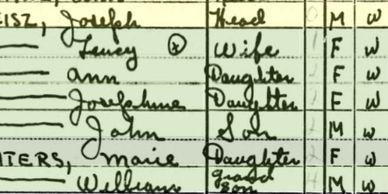 EISZ, Joseph Head M W
Lewey ⓧ Wife F W
Ann Daughter F W
Josephine Daughter F W
John Son M W
TERS, Marie Daughter F W
William grandson M W